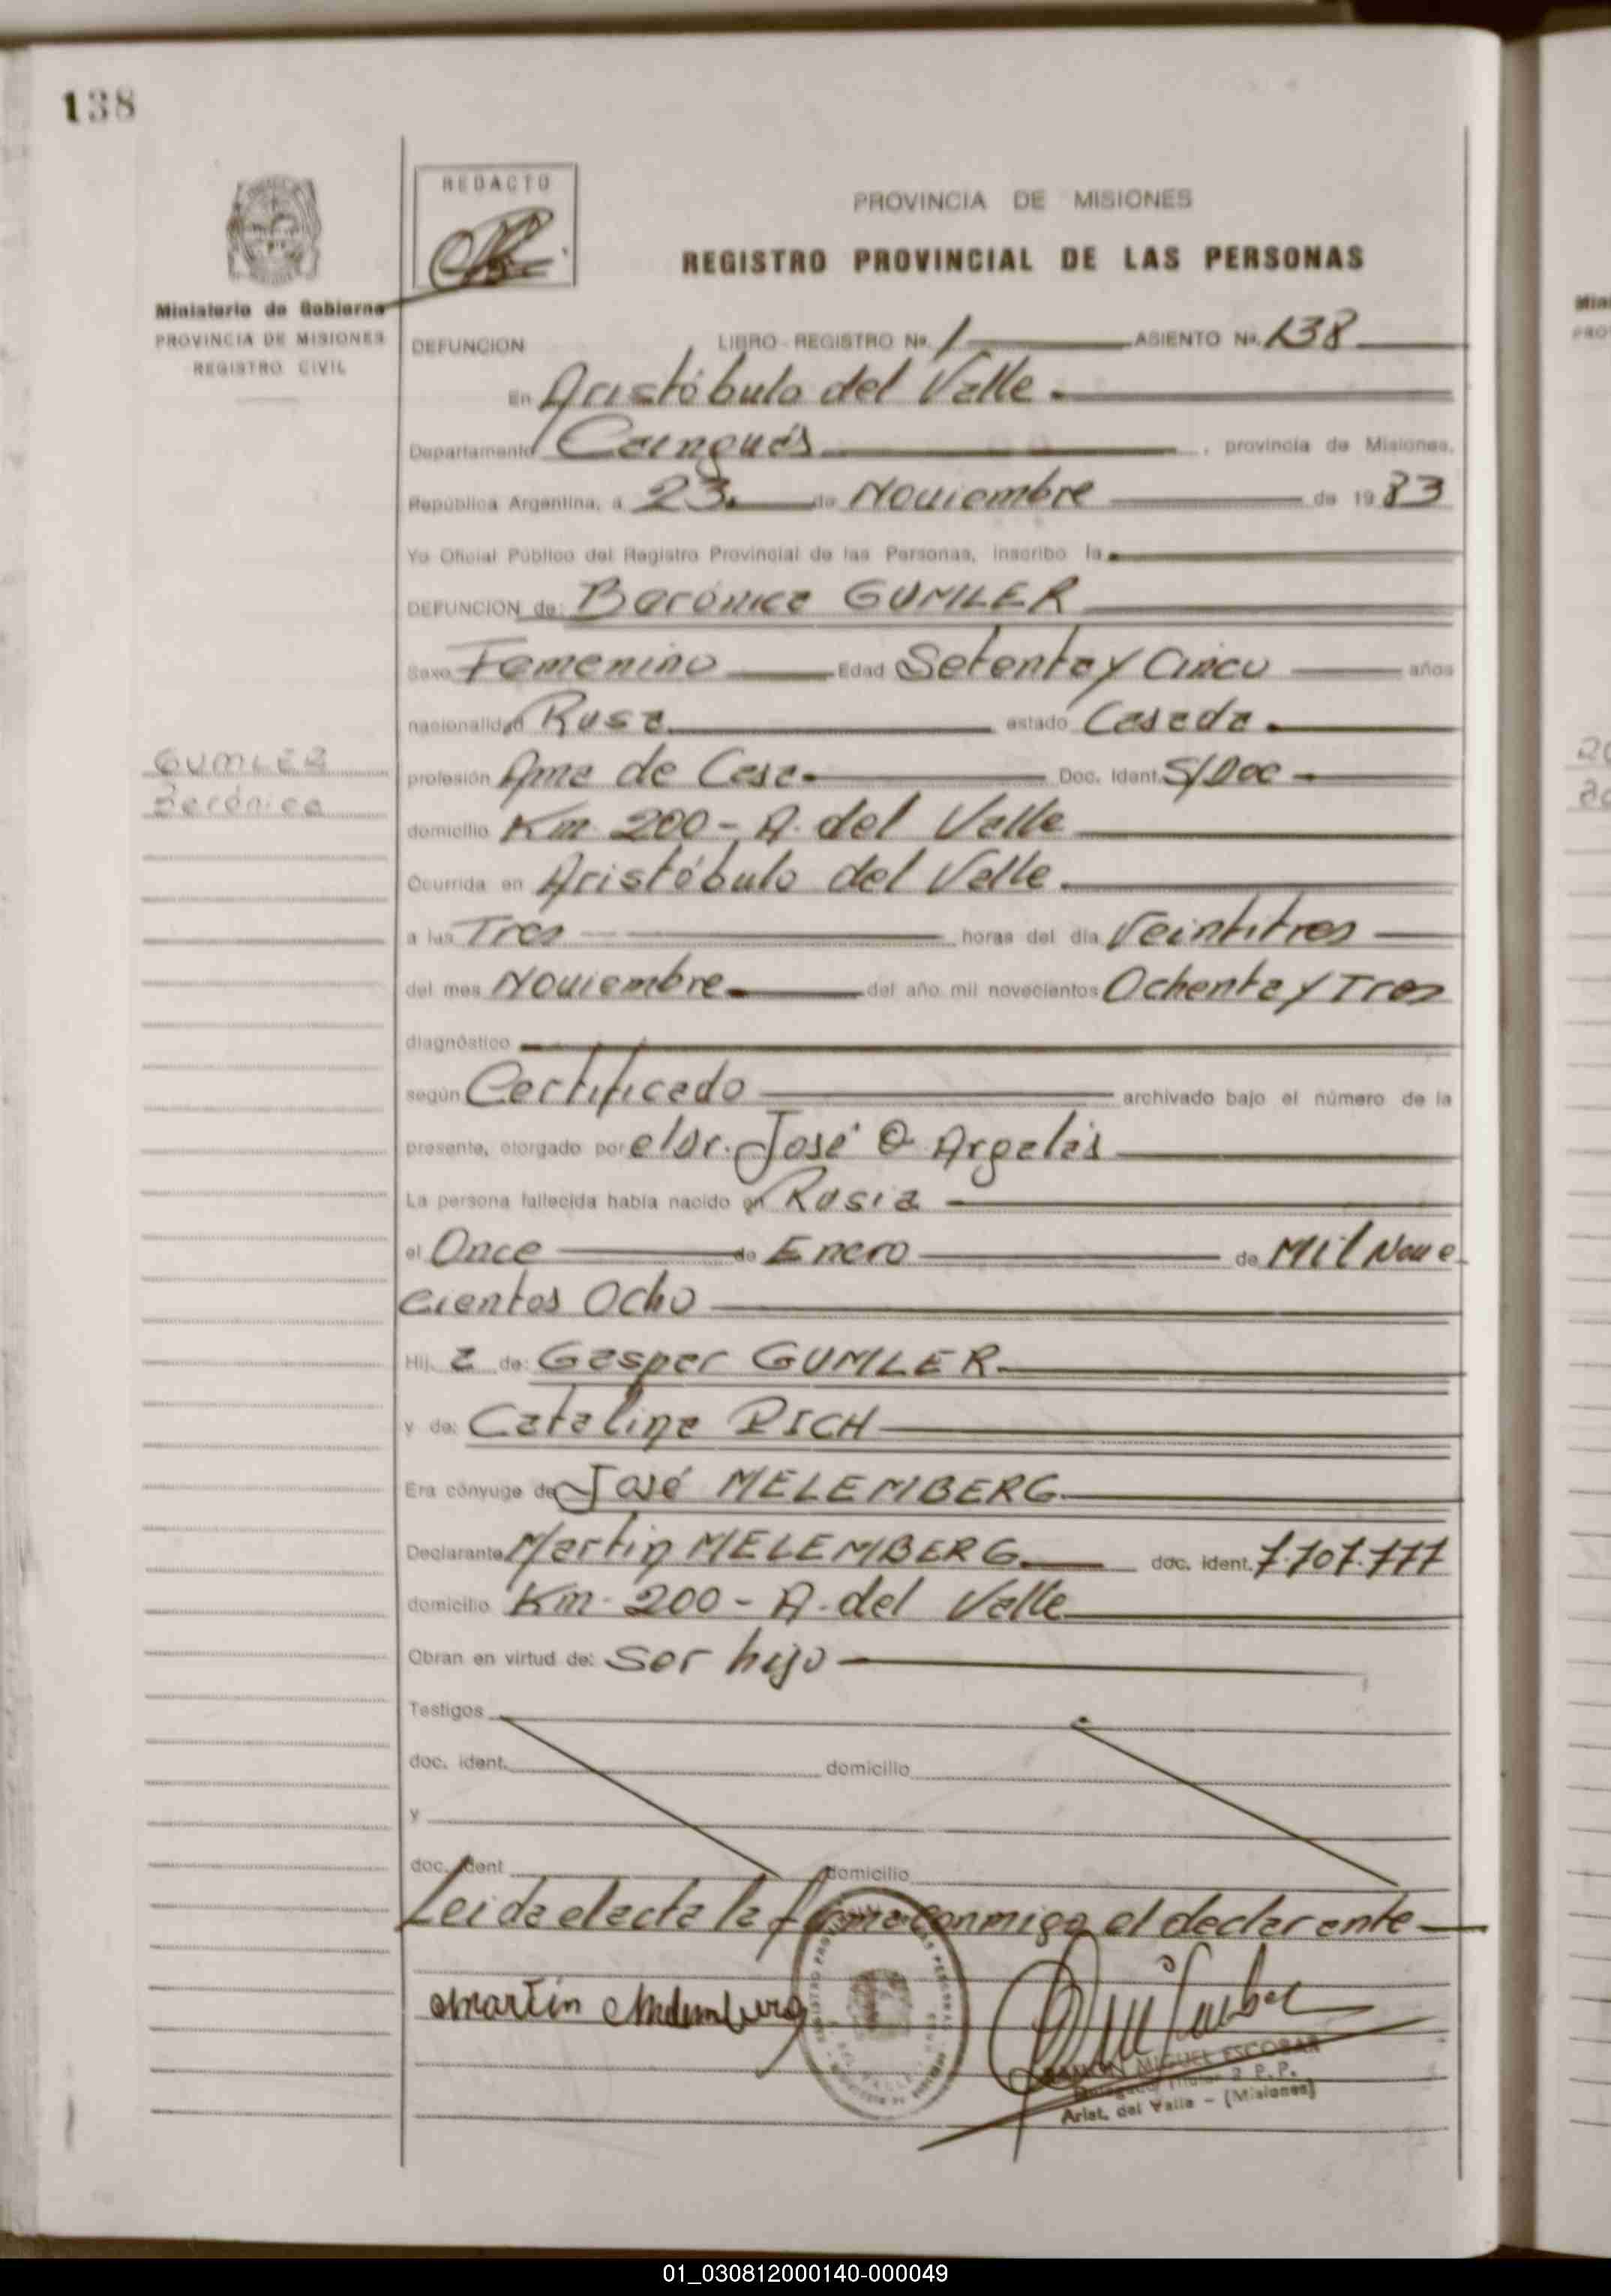 138
REDACTO
PROVINCIA DE MISIONES
REGISTRO PROVINCIAL DE LAS PERSONAS
Ministerio de Gobierno
PROVINCIA DE MISIONES
REGISTRO CIVIL
DEFUNCION LIBRO - REGISTRO Nº. 1 ASIENTO Nº. 138
En Aristóbulo del Valle.
Departamento Cainguás, provincia de Misiones,
República Argentina, a 23. de Noviembre de 1983
Yo Oficial Público del Registro Provincial de las Personas, inscribo la
DEFUNCION de: Berónica GUMLER
Sexo Femenino Edad Setenta y Cinco años
nacionalidad Rusa estado Casada.
GUMLER
Berónica
profesión Ama de Casa. Doc. Ident. S/Doc
domicilio Km 200 - A. del Valle
Ocurrida en Aristóbulo del Valle.
a las Tres horas del día Veintitres
del mes Noviembre del año mil novecientos Ochenta y Tres
diagnóstico
según Certificado archivado bajo el número de la
presente, otorgado por el Dr. José O Argalás
La persona fallecida había nacido en Rusia
el Once de Enero de Mil Nove
cientos Ocho
Hij a de: Gasper GUMLER
y de: Catalina PICH
Era cónyuge de José MELEMBERG
Declarante Martin MELEMBERG doc. ident. 7.707.777
domicilio Km. 200 - A. del Valle
Obran en virtud de: Ser hijo
Testigos
doc. ident. domicilio
y
doc. ident domicilio
Leida el acta la firma conmigo el declarante
Martin Melemberg
RAMON MIGUEL ESCOBAR
Arist. del Valle - (Misiones)
01_030812000140-000049